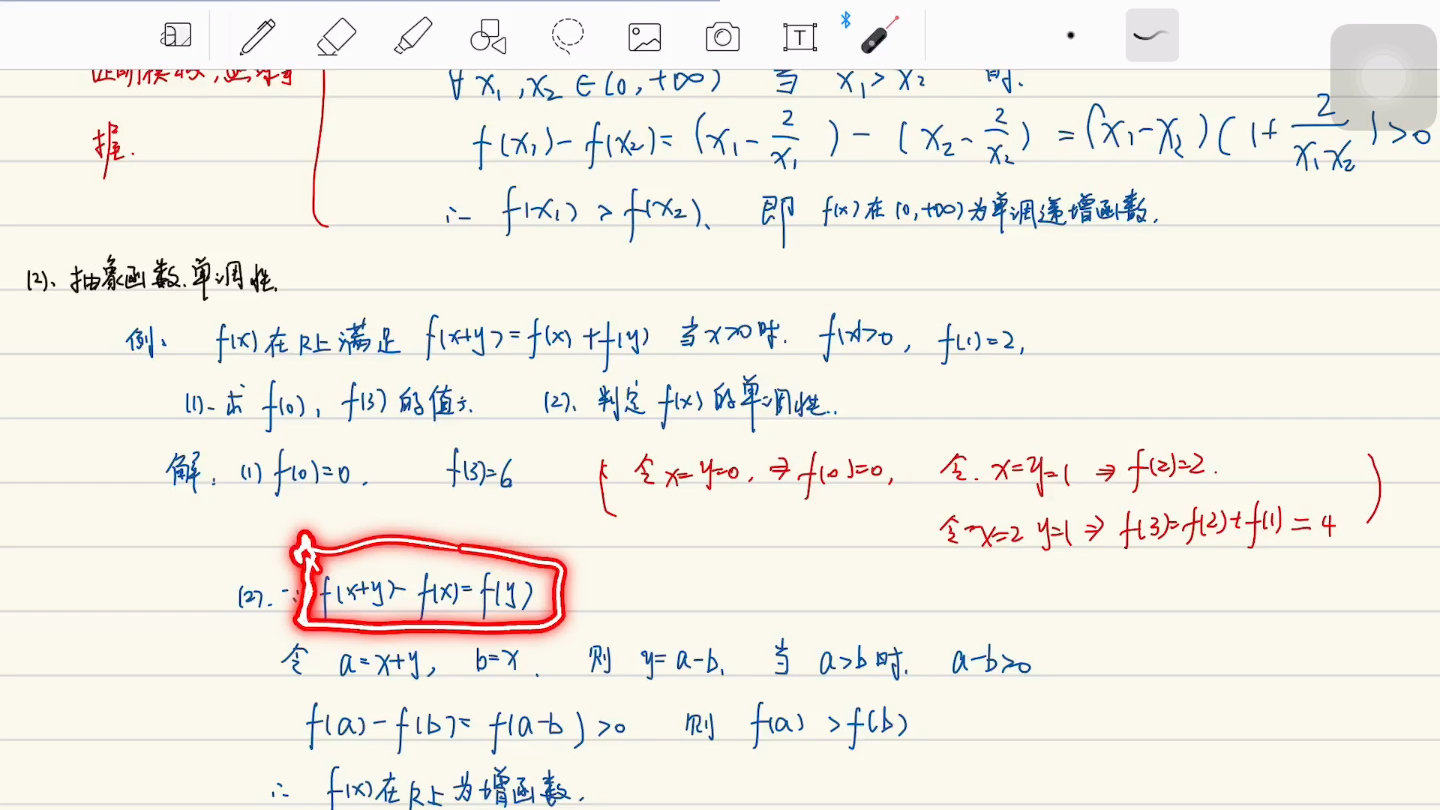 握.
∀ x₁, x₂ ∈ (0, +∞) 当 x₁ > x₂ 时.
f(x₁) - f(x₂) = (x₁ - 2/x₁) - (x₂ - 2/x₂) = (x₁ - x₂)(1 + 2/(x₁x₂)) > 0
∴ f(x₁) > f(x₂)、 即 f(x)在(0,+∞)为单调递增函数.
(2)、抽象函数.单调性.
例、 f(x)在R上满足 f(x+y)=f(x)+f(y) 当x>0时. f(x)>0, f(1)=2,
(1)、求 f(0), f(3)的值; (2)、判定 f(x)的单调性.
解: (1) f(0)=0, f(3)=6 (令 x=y=0, ⇒ f(0)=0, 令. x=y=1 ⇒ f(2)=2.
令x=2 y=1 ⇒ f(3)=f(2)+f(1)=4)
(2). ∵ f(x+y)-f(x)=f(y)
令 a=x+y, b=x. 则 y=a-b. 当 a>b时. a-b>0
f(a)-f(b)=f(a-b)>0 则 f(a)>f(b)
∴ f(x)在R上为增函数.
T